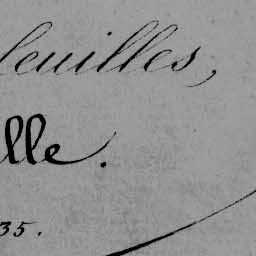 feuilles,
lle.
35.